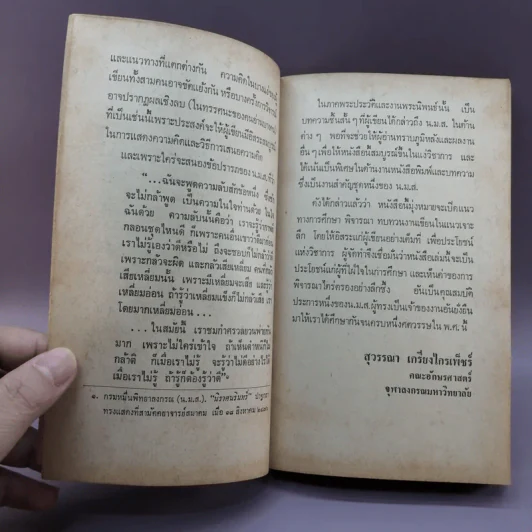 และแนวทางที่แตกต่างกัน ความคิดในบาง
เขียนทั้งสามคนอาจขัดแย้งกัน หรือบางครั้ง
อาจปรากฏผลเชิงลบ (ในทรรศนะของคนอ่าน
ที่เป็นเช่นนี้เพราะประสงค์จะให้ผู้เขียนมีอิสระ
ในการแสดงความคิดและวิธีการเสนอความคิด
และเพราะใคร่จะสนองข้อปรารภของ น.ม.ส. ที่ว่า
"...ฉันจะพูดความลับสักข้อหนึ่ง ซึ่ง
จะไม่กล้าพูด เป็นความในใจท่านด้วย ในใจ
ฉันด้วย ความลับนั้นคือว่า เราจะ
กลอนชุดไหนดี ก็เพราะคนอื่นเขาว่าดี
เราไม่รู้เองว่าดีหรือไม่ ถึงจะชอบก็ไม่กล้าว่า
เพราะกลัวจะผิด และกลัวเสียเหลี่ยม คนที่กลัว
เสียเหลี่ยมนั้น เพราะมีเหลี่ยมจะเสีย และ
เหลี่ยมอ่อน ถ้ารู้ว่าเหลี่ยมแข็งก็ไม่กลัวเสีย เรา
โดยมากเหลี่ยมอ่อน...
...ในสมัยนี้ เราชมกำศรวลยวนพ่าย
มาก เพราะไม่ใคร่เข้าใจ ถ้าเห็น
กล้าติ ก็เมื่อเราไม่รู้ จะรู้ว่าไม่ดีอย่างไรได้
เมื่อเราไม่รู้ ถ้ารู้ก็ต้องรู้ว่าดี"๑
๑. กรมหมื่นพิทยาลงกรณ (น.ม.ส.). "นิราศนรินทร์" ปาฐกถา
ทรงแสดงที่สามัคยาจารย์สมาคม เมื่อ ๑๘ สิงหาคม
ในภาคพระประวัติและงานพระนิพนธ์นั้น เป็น
บทความชิ้นสั้น ๆ ที่ผู้เขียนได้กล่าวถึง น.ม.ส. ในด้าน
ต่าง ๆ พอที่จะช่วยให้ผู้อ่านทราบภูมิหลังและผลงาน
อื่น ๆ เพื่อให้หนังสือนี้สมบูรณ์ขึ้นในแง่วิชาการ และ
ได้เน้นเป็นพิเศษในด้านงานหนังสือพิมพ์และบทความ
ซึ่งเป็นงานสำคัญชุดหนึ่งของ น.ม.ส.
ดังได้กล่าวแล้วว่า หนังสือนี้มุ่งหมายจะเปิดแนว
ทางการศึกษา พิจารณา ทบทวนงานเขียนในแนวเจาะ
ลึก โดยให้อิสระแก่ผู้เขียนอย่างเต็มที่ เพื่อประโยชน์
แห่งวิชาการ ผู้จัดทำจึงเชื่อมั่นว่าหนังสือเล่มนี้จะเป็น
ประโยชน์แก่ผู้ที่มีใจในการศึกษา และเห็นค่าของการ
พิจารณาใคร่ครวญอย่างลึกซึ้ง อันเป็นคุณสมบัติ
ประการหนึ่งของ น.ม.ส. ผู้ทรงเป็นเจ้าของงานอันยั่งยืน
มาให้เราได้ศึกษากันจนครบหนึ่งศตวรรษใน พ.ศ. นี้
สุวรรณา เกรียงไกรเพ็ชร์
คณะอักษรศาสตร์
จุฬาลงกรณมหาวิทยาลัย